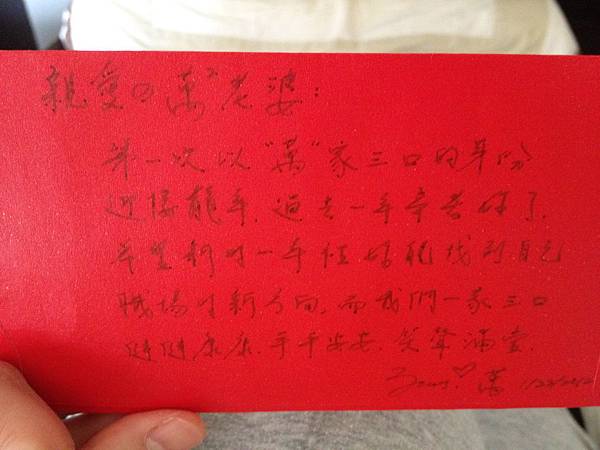 親愛の萬老婆：
第一次以“萬”家三口的身份
迎接龍年，過去一年辛苦妳了，
希望新的一年裡妳能找到自己
職場的新方向，而我們一家三口
健健康康，平平安安，笑聲滿堂。
萬 1/22/2012